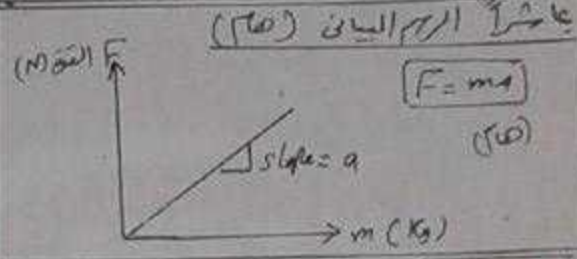 عاشراً الرسم البياني (هام)
F = ma
(هام)
القوة (N) F
slope = a
m (Kg)